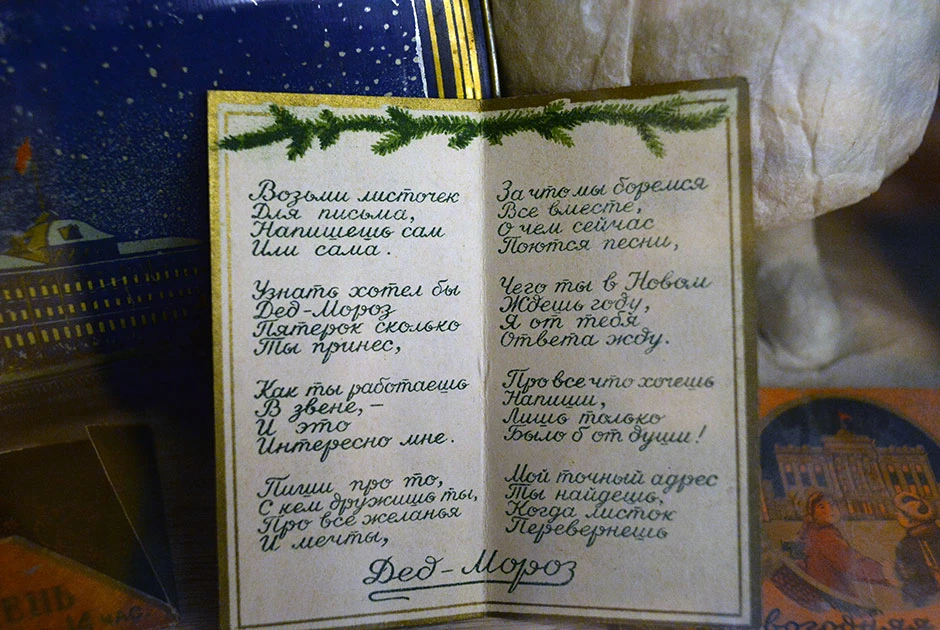 Возьми листочек
Для письма,
Напишешь сам
Или сама.
Узнать хотел бы
Дед-Мороз
Пятерок сколько
Ты принес,
Как ты работаешь
В звене,-
И это
Интересно мне.
Пиши про то,
С кем дружишь ты,
Про все желанья
И мечты,
За что мы боремся
Все вместе,
О чем сейчас
Поются песни,
Чего ты в Новом
Ждешь году,
Я от тебя
Ответа жду.
Про все что хочешь
Напиши,
Лишь только
Было б от души!
Мой точный адрес
Ты найдешь,
Когда листок
Перевернешь
Дед-Мороз
ЕНЬ